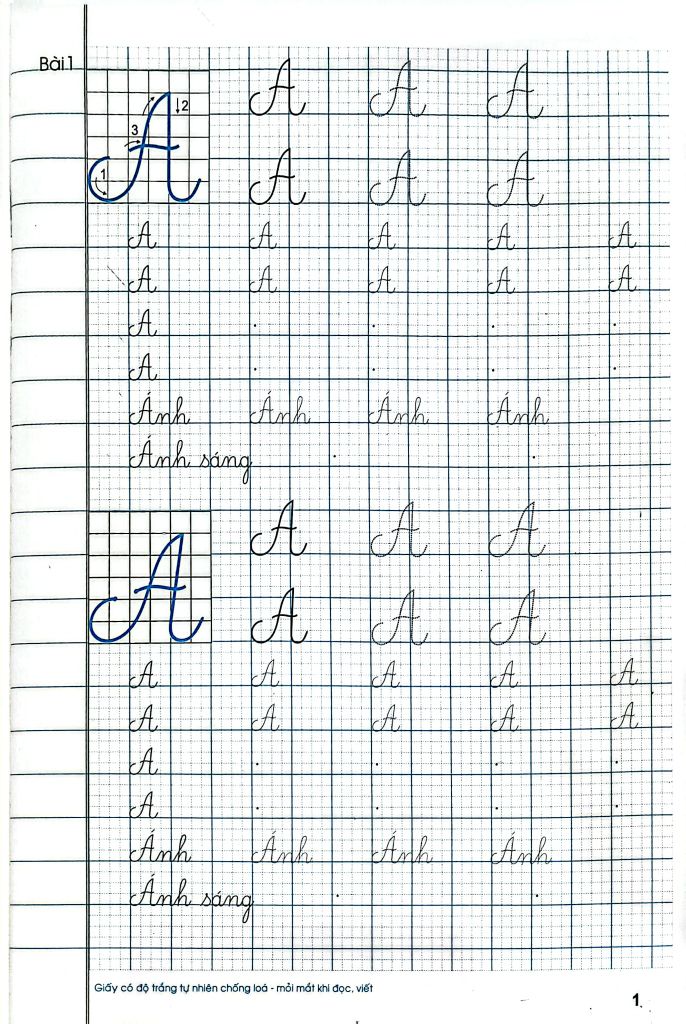 Bài 1
A A A
1 2 3 A
A A A
A A A A A
A A A A A
A
A
Ánh Ánh Ánh Ánh
Ánh sáng
A A A
A
A A A
A A A A A
A A A A A
A
A
Ánh Ánh Ánh Ánh
Ánh sáng
Giấy có độ trắng tự nhiên chống loá - mỏi mắt khi đọc, viết
1